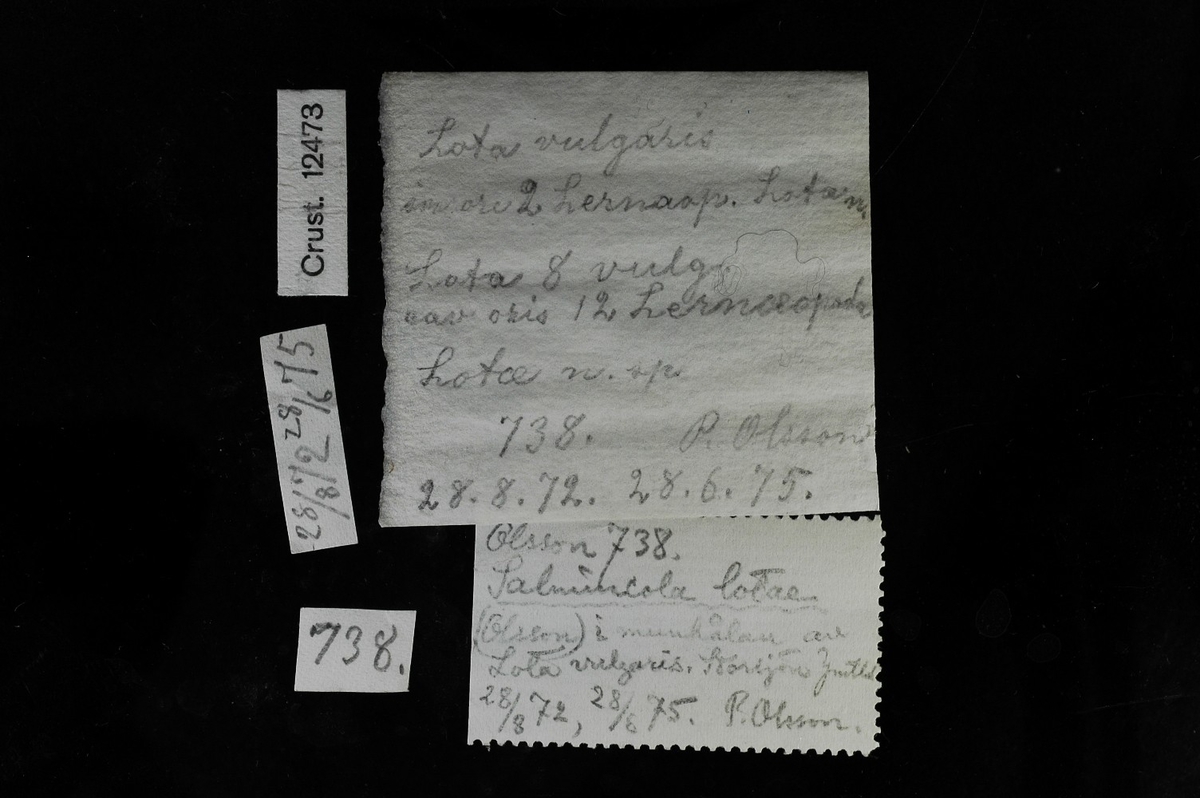 Crust. 12473
28/8 72 28/6 75
738.
Lota vulgaris
in ore 2 Lernaop. Lotæ n.
Lota 8 vulg.
cav oris 12 Lernæopoda
Lotæ n. sp
738. P. Olsson
28.8.72. 28.6.75.
Olsson 738.
Salmincola lotae
(Olsson) i munhålan av
Lota vulgaris. Storsjön
28/8 72, 28/6 75. P. Olsson.